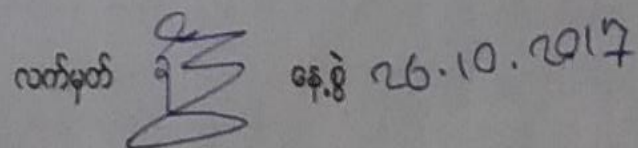 လက်မှတ် နေ့စွဲ 26.10.2017